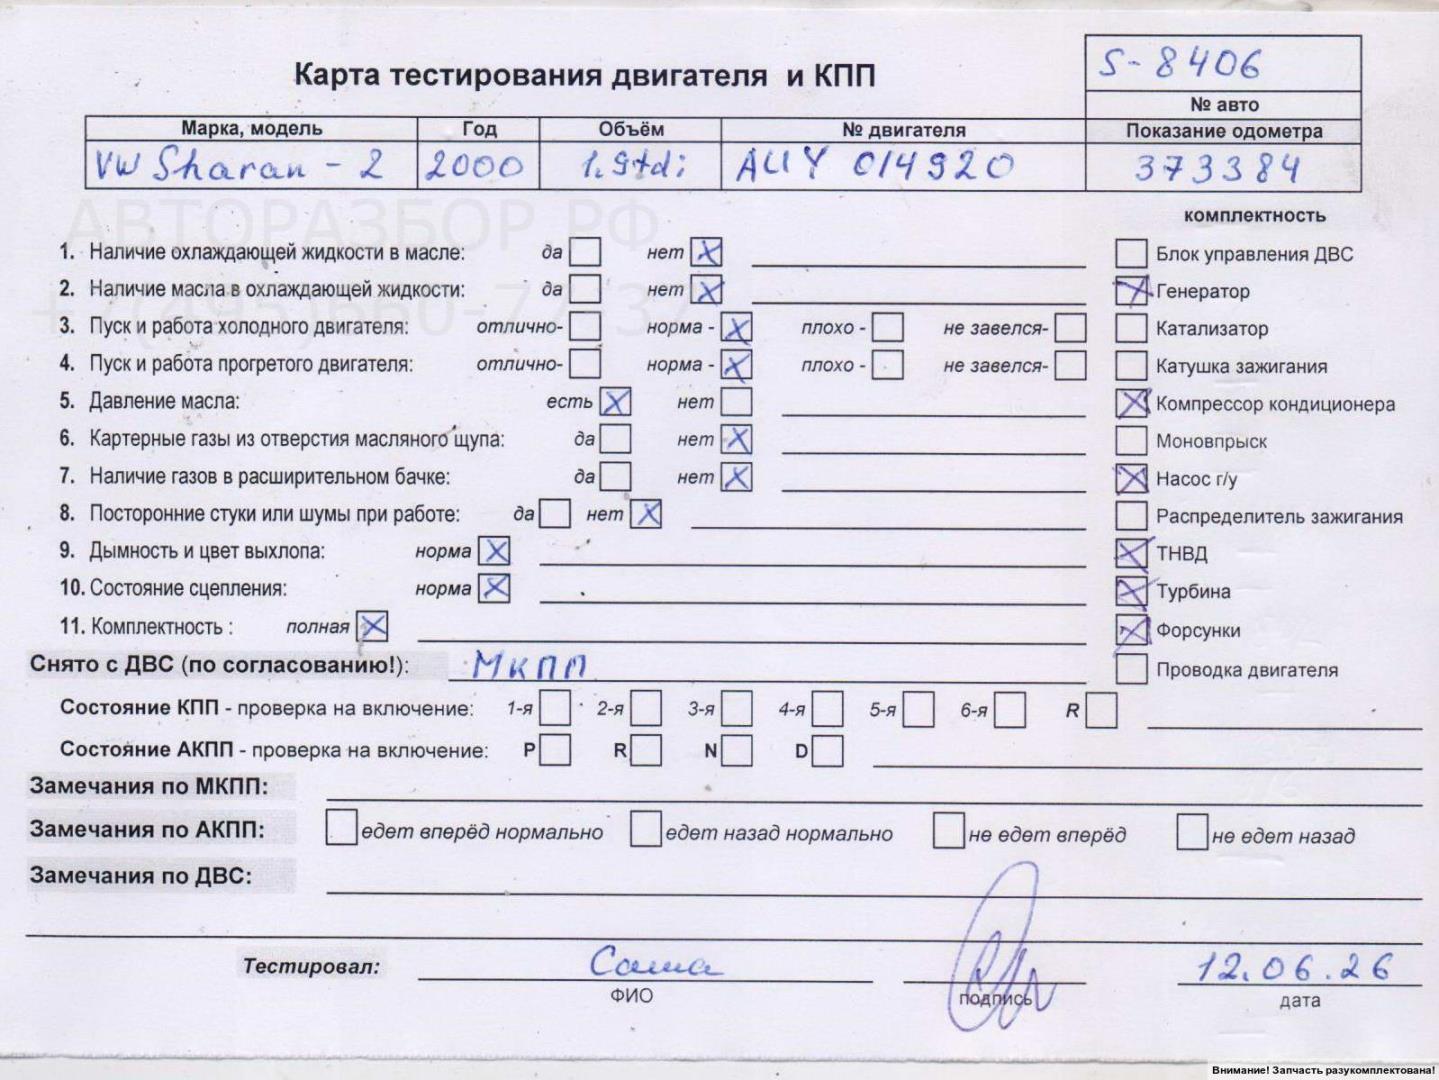 S-8406
Карта тестирования двигателя и КПП
№ авто
Марка, модель Год Объём № двигателя Показание одометра
VW Sharan - 2 2000 1.9tdi AUY 014920 373384
АВТОРАЗБОР.РФ
комплектность
1. Наличие охлаждающей жидкости в масле: да нет Блок управления ДВС
2. Наличие масла в охлаждающей жидкости: да нет Генератор
+7(495)660-77-37
3. Пуск и работа холодного двигателя: отлично- норма - плохо - не завелся- Катализатор
4. Пуск и работа прогретого двигателя: отлично- норма - плохо - не завелся- Катушка зажигания
5. Давление масла: есть нет Компрессор кондиционера
6. Картерные газы из отверстия масляного щупа: да нет Моновпрыск
7. Наличие газов в расширительном бачке: да нет Насос г/у
8. Посторонние стуки или шумы при работе: да нет Распределитель зажигания
9. Дымность и цвет выхлопа: норма ТНВД
10. Состояние сцепления: норма Турбина
11. Комплектность : полная Форсунки
Снято с ДВС (по согласованию!): МКПП Проводка двигателя
Состояние КПП - проверка на включение: 1-я 2-я 3-я 4-я 5-я 6-я R
Состояние АКПП - проверка на включение: P R N D
Замечания по МКПП:
Замечания по АКПП: едет вперёд нормально едет назад нормально не едет вперёд не едет назад
Замечания по ДВС:
Тестировал: Саша 12.06.26
ФИО подпись дата
Внимание! Запчасть разукомплектована!